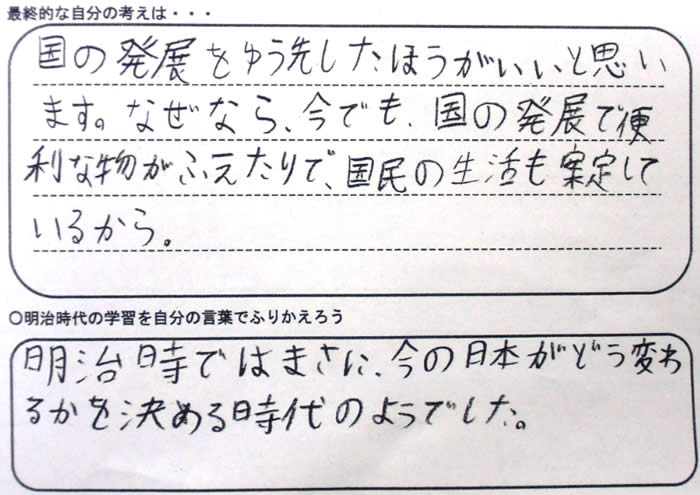 最終的な自分の考えは・・・
国の発展をゆう先したほうがいいと思い
ます。なぜなら、今でも、国の発展で便
利な物がふえたりで、国民の生活も案定して
いるから。
○明治時代の学習を自分の言葉でふりかえろう
明治時ではまさに、今の日本がどう変わ
るかを決める時代のようでした。